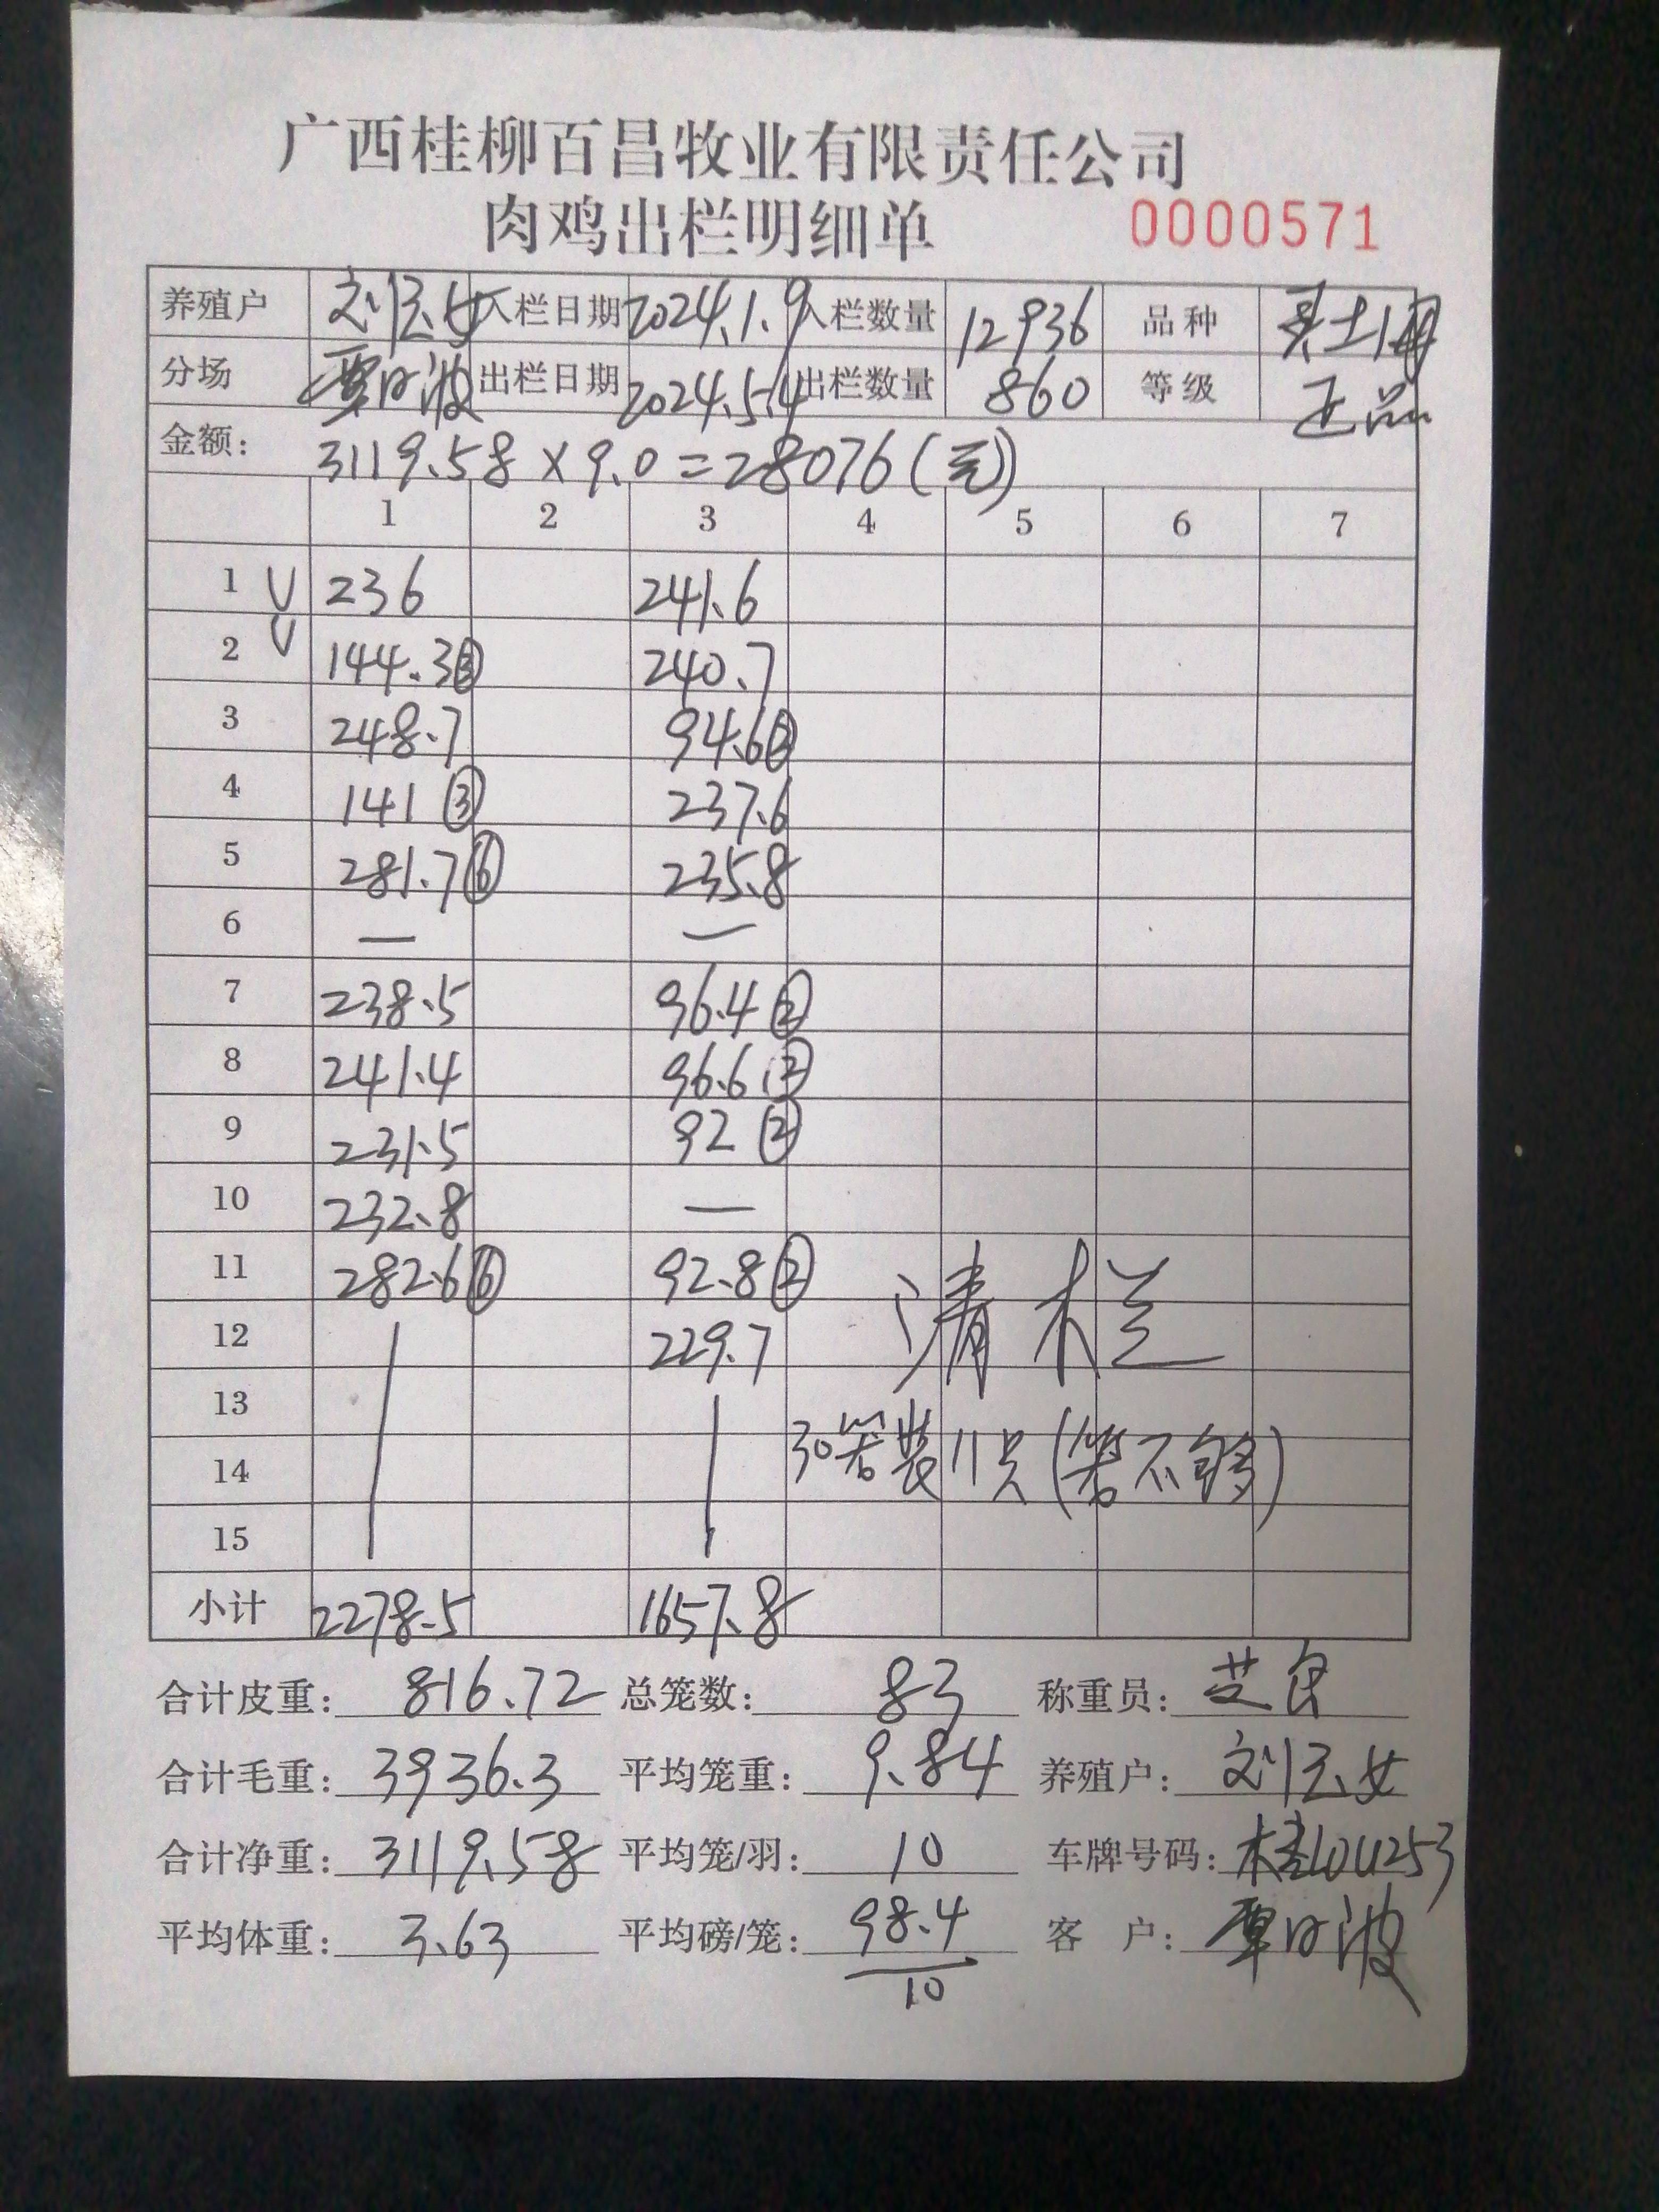 广西桂柳百昌牧业有限责任公司
肉鸡出栏明细单 0000571
养殖户 刘玉女 入栏日期 2024.1.9 入栏数量 12936 品种 土
分场 覃日波 出栏日期 2024.5.4 出栏数量 860 等级 正品
金额: 3119.58×9.0=28076(元)
1 2 3 4 5 6 7
1 236 241.6
2 144.3③ 240.7
3 248.7 94.6②
4 141③ 237.6
5 281.7⑥ 235.8
6 — —
7 238.5 96.4②
8 241.4 96.6②
9 231.5 92②
10 232.8 —
11 282.6⑥ 92.8②
12 229.7 清栏
13
14 30笼装11只(笼不够)
15
小计 2278.5 1657.8
合计皮重: 816.72 总笼数: 83 称重员:
合计毛重: 3936.3 平均笼重: 9.84 养殖户: 刘玉女
合计净重: 3119.58 平均笼/羽: 10 车牌号码:
平均体重: 3.63 平均磅/笼: 98.4 客户: 覃日波
10